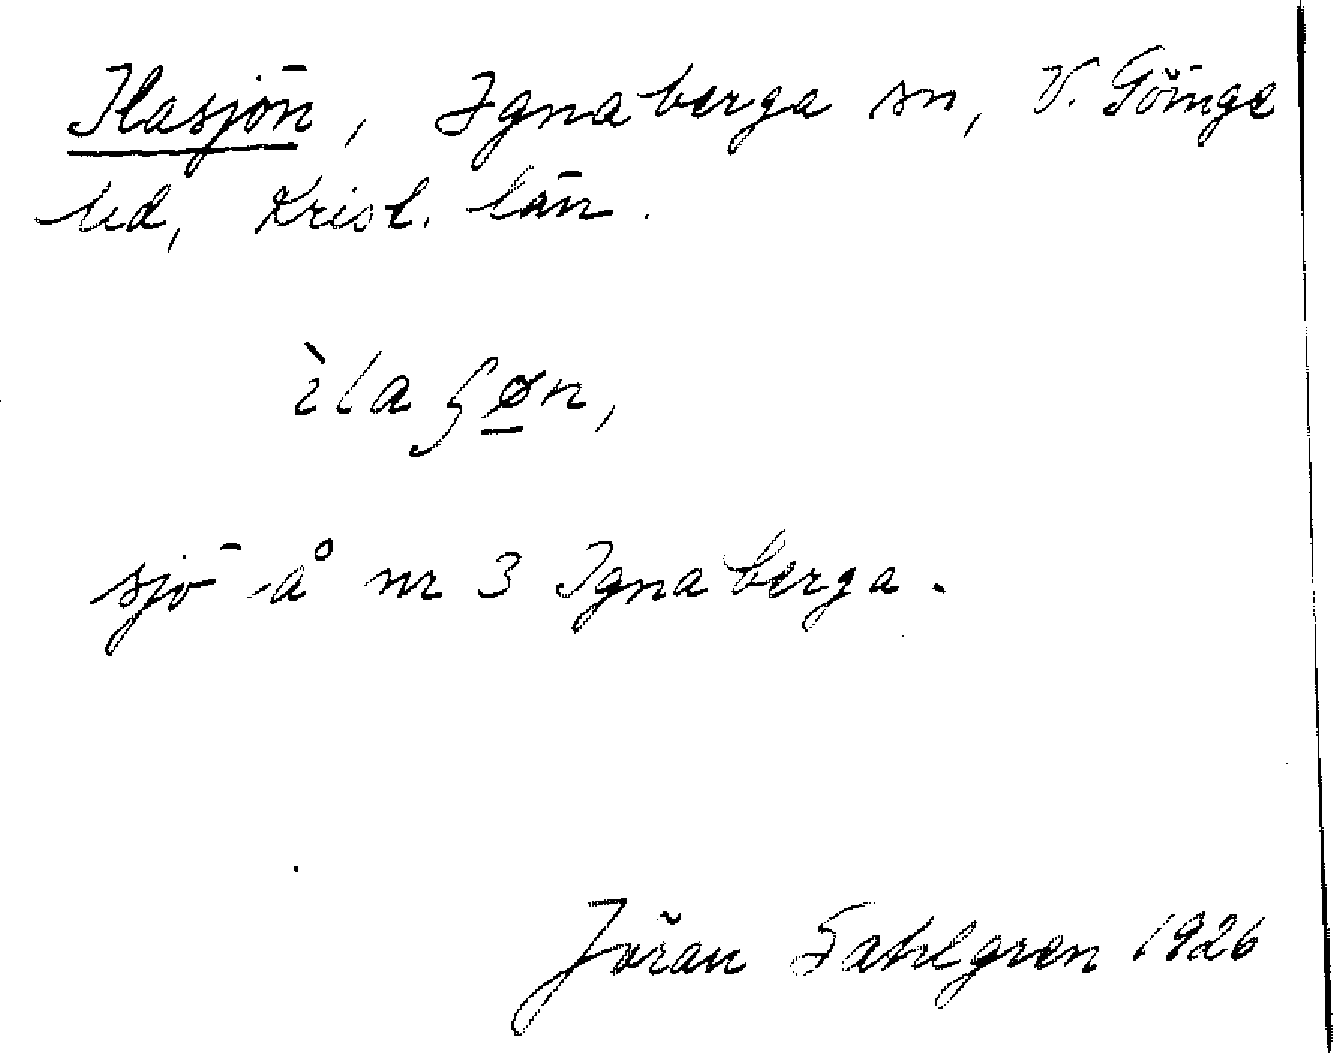 Ilasjön, Ignaberga sn, V. Göinge
hd, Krist. län.
ìla ʂø̠n,
sjö å nr 3 Ignaberga.
Jöran Sahlgren 1926